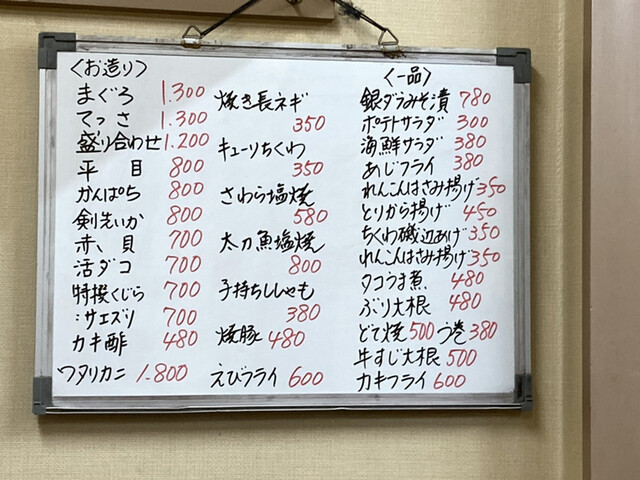 〈お造り〉
まぐろ 1.300
てっさ 1.300
盛り合わせ 1.200
平目 800
かんぱち 800
剣先いか 800
赤貝 700
活ダコ 700
特撰くじら 700
:サエズリ 700
カキ酢 480
ワタリカニ 1.800
焼き長ネギ
350
キューリちくわ
350
さわら塩焼
580
太刀魚塩焼
800
子持ちししゃも
380
焼豚 480
えびフライ 600
〈一品〉
銀ダラみそ漬 780
ポテトサラダ 300
海鮮サラダ 380
あじフライ 380
れんこんはさみ揚げ 350
とりから揚げ 450
ちくわ磯辺あげ 350
れんこんはさみ揚げ 350
タコうま煮 480
ぶり大根 480
どて焼 500 う巻 380
牛すじ大根 500
カキフライ 600